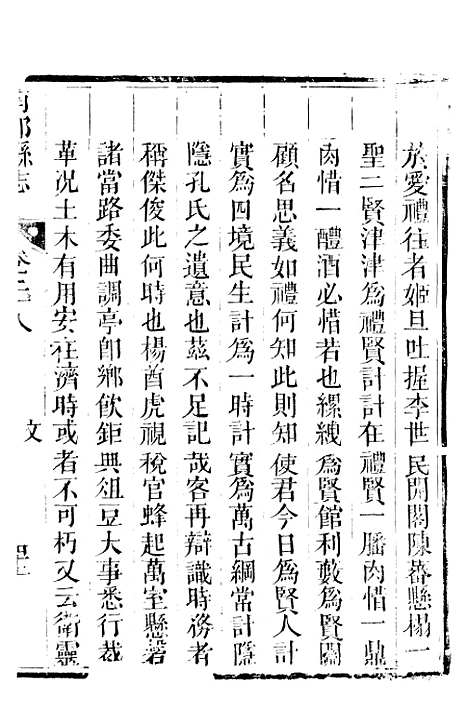 於愛禮往者姬旦吐握李世民開閣陳蕃懸榻一
聖二賢津津爲禮賢計計在禮賢一膰肉惜一鼎
肉惜一醴酒必惜若也縲絏爲賢館利藪爲賢關
顧名思義如禮何知此則知使君今日爲賢人計
實爲四境民生計爲一時計實爲萬古綱常計隱
隱孔氏之遺意也茲不足記哉客再辯識時務者
稱傑俊此何時也楊酋虎視稅官蜂起萬室懸磬
諸當路委曲調亭卽鄉飲鉅典俎豆大事悉行裁
革況土木有用安在濟時或者不可朽又云衛靈
南部縣志
卷二八
文